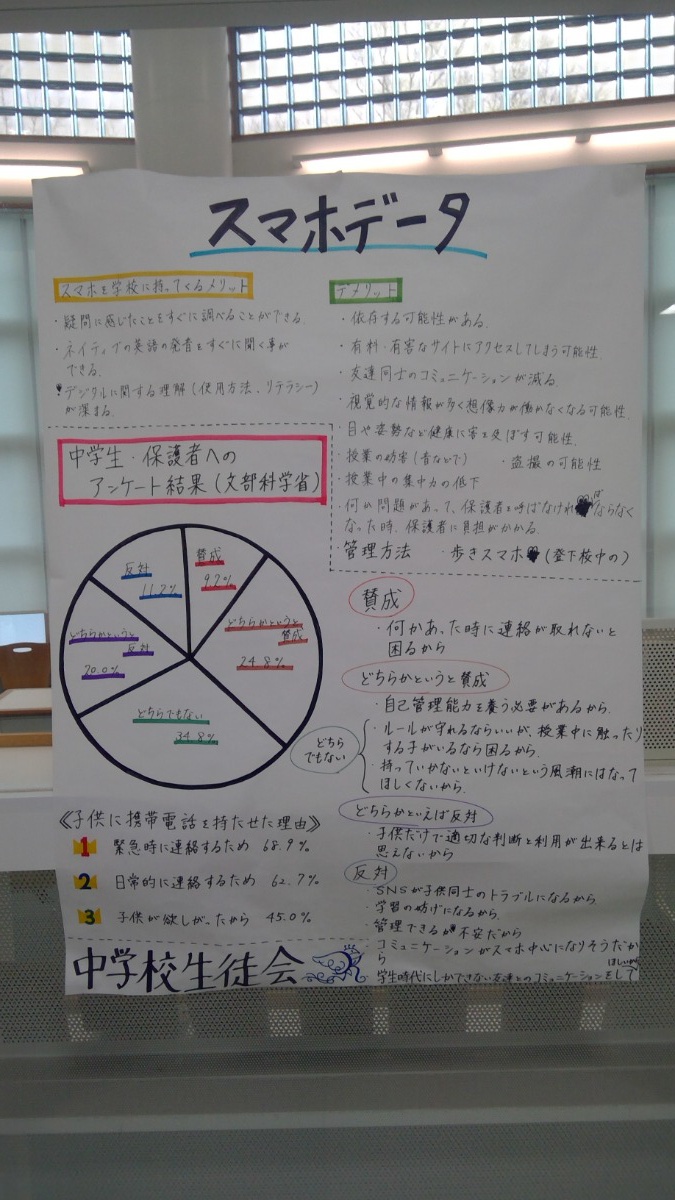 スマホデータ
スマホを学校に持ってくるメリット
・疑問に感じたことをすぐに調べることができる。
・ネイティブの英語の発音をすぐに聞く事が
できる。
・デジタルに関する理解(使用方法、リテラシー)
が深まる。
デメリット
・依存する可能性がある。
・有料・有害なサイトにアクセスしてしまう可能性。
・友達同士のコミュニケーションが減る。
・視覚的な情報が多く想像力が働かなくなる可能性。
・目や姿勢など健康に害を及ぼす可能性。
・授業の妨害(音などで) ・盗撮の可能性
・授業中の集中力の低下
・何か問題があって、保護者を呼ばなければならなく
なった時、保護者に負担がかかる。
・管理方法 ・歩きスマホ(登下校中の)
中学生・保護者への
アンケート結果(文部科学省)
賛成
9.2%
どちらかというと
賛成
24.8%
どちらでもない
34.8%
どちらかというと
反対
20.0%
反対
11.2%
《子供に携帯電話を持たせた理由》
1 緊急時に連絡するため 68.9%
2 日常的に連絡するため 62.7%
3 子供が欲しがったから 45.0%
中学校生徒会
賛成
・何かあった時に連絡が取れないと
困るから
どちらかというと賛成
・自己管理能力を養う必要があるから。
どちら
でもない
・ルールが守れるならいいが、授業中に触ったり
する子がいるなら困るから。
・持っていかないといけないという風潮にはなって
ほしくないから。
どちらかといえば反対
・子供だけで適切な判断と利用が出来るとは
思えないから
反対
・SNSが子供同士のトラブルになるから
・学習の妨げになるから。
・管理できるか不安だから
・コミュニケーションがスマホ中心になりそうだか
ら
・学生時代にしかできない友達とのコミュニケーションをして